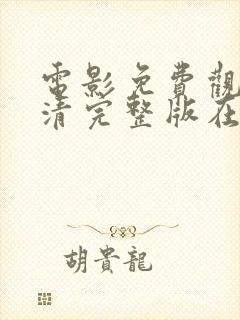 電影免費觀
清完整版在
胡貴龍